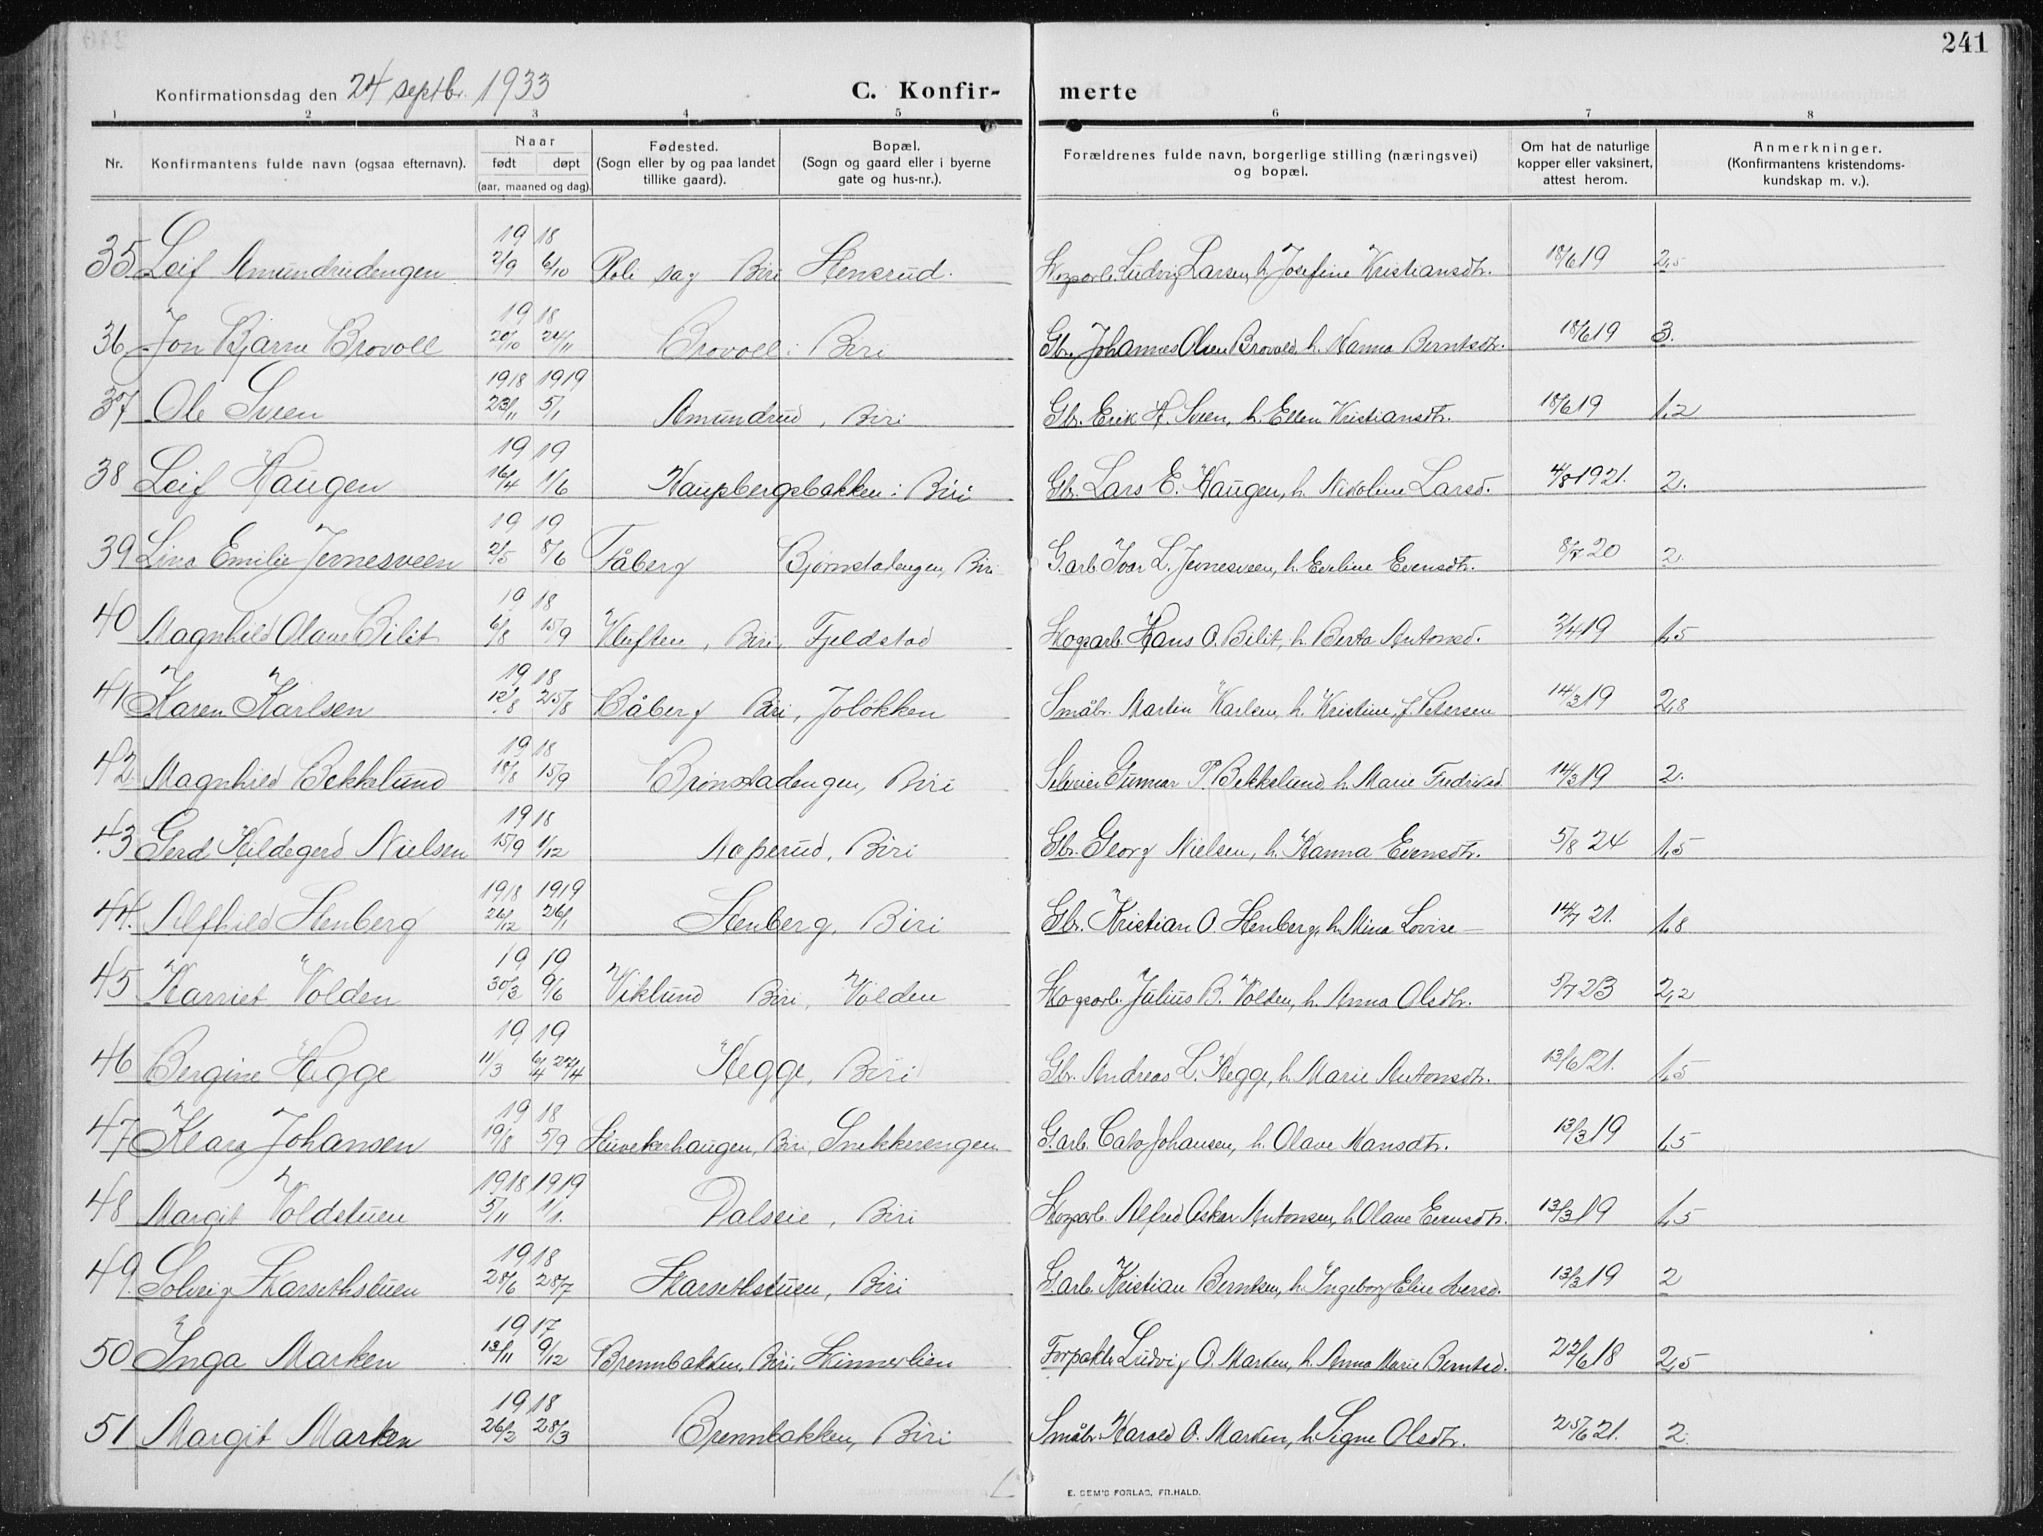 241
Konfirmationsdag den 24 septbr. 1933
C. Konfir- merte
1 2 3 4 5 6 7 8
Nr. Konfirmantens fulde navn (ogsaa efternavn). Naar født døpt (aar, maaned og dag). Fødested. (Sogn eller by og paa landet tillike gaard). Bopæl. (Sogn og gaard eller i byerne gate og hus-nr.). Forældrenes fulde navn, borgerlige stilling (næringsvei) og bopæl. Om hat de naturlige kopper eller vaksinert, attest herom. Anmerkninger. (Konfirmantens kristendoms- kundskap m. v.).
19 18
35 Leif Amundrudengen 2/9 6/10 Biri Stensrud. Skogsarb. Ludvig Larsen, h. Josefine Kristiansdtr. 18/6 19 2,5
19 18
36 Jon Bjarne Brovoll 20/10 24/11 Brovoll i Biri Gbr. Johannes Olsen Brovold, h. Hanna Berntsdtr. 18/6 19 3.
1918 1919
37 Ole Sveen 23/11 5/1 Amundrud, Biri Gbr. Erik H. Sveen, h. Ellen Kristiansdtr. 18/6 19 1,2
19 19
38 Leif Haugen 16/4 1/6 Haugsbergsbakken i Biri Gbr. Lars E. Haugen, h. Nikoline Larsd. 4/8 1921. 2.
19 19
39 Lina Emilie Jevnesveen 2/5 8/6 Fåberg Bjørnstadengen, Biri G.arb. Ivar L. Jevnesveen, h. Eveline Evensdtr. 8/7 20 2.
19 18
40 Magnhild Olave Bilit 6/8 15/9 Kluften, Biri, Fjeldstad Skogsarb. Hans O. Bilit, h. Berta Antonsd. 2/4 19 1,5
19 18
41 Karen Karlsen 12/8 25/8 Båberg Biri, Jolokken Småbr. Martin Karlsen, h. Kristine, f. Petersen 14/3 19 2,8
19 18
42. Magnhild Bekkelund 18/8 15/9 Brønstadengen, Biri Gunnar P. Bekkelund, h. Marie Fredriksd. 14/3 19 2.
19 18
43 Gerd Hildegerd Nielsen 15/9 1/12 Biri Gbr. Georg Nielsen, h. Hanna Evensdtr. 5/8 24 1,5
1918 1919
44. Alfhild Stenberg 26/12 26/1 Stenberg, Biri Gbr. Kristian O. Stenberg, h. Mina Lovise — 14/7 21. 1,8
19 19
45 Harriet Volden 30/3 9/6 Viklund Biri, Volden Skogsarb. Julius B. Volden, h. Anna Olsdtr. 5/7 23 2,2
19 19
46 Bergine Hegge 11/3 6/4 27/4 Hegge, Biri Gbr. Andreas L. Hegge, h. Marie Antonsdtr. 13/6 21. 1,5
19 18
47 Klara Johansen 19/8 5/9 Biri, Snikkerengen G.arb. Johansen, h. Olave Hansdtr. 13/3 19 1,5
1918 1919
48 Margit Voldstuen 5/11 1/1. Dalseie, Biri Skogsarb. Alfred Oskar Antonsen, h. Olave Evensdtr. 13/3 19 1,5
19 18
49. Solveig Skarsethstuen 28/6 28/7 Skarsethstuen, Biri G.arb. Kristian Berntsen, h. Ingeborg Elise Iversd. 13/3 19 2
19 17
50 Inga Marken 13/11 9/12 Brennbakken, Biri. Skinnerlien Forpakter Ludvig O. Marken, h. Anna Marie Berntsd. 22/6 18 2,5
19 18
51 Margit Marken 26/2 28/3 Brennbakken, Biri Småbr. Harald O. Marken, h. Signe Olsdtr. 25/6 21. 2.
E. SEM'S FORLAG, FR.HALD.